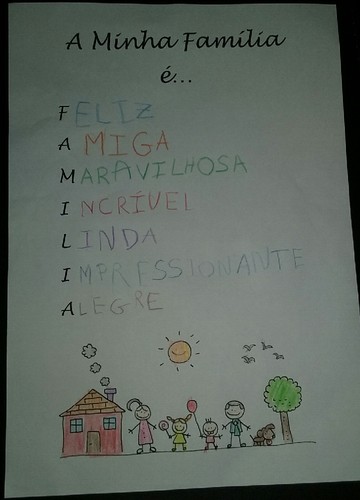 A Minha Família
é...
FELIZ
AMIGA
MARAVILHOSA
INCRÍVEL
LINDA
IMPRESSIONANTE
ALEGRE